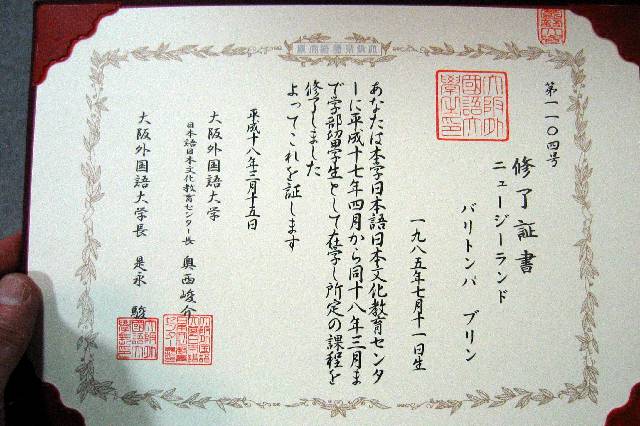 第一一〇四号
修了証書
ニュージーランド
バリトンパ ブリン
一九八五年七月十一日生
あなたは本学日本語日本文化教育センタ
ーに平成十七年四月から同十八年三月ま
で学部留学生として在学し所定の課程を
修了しました
よってこれを証します
平成十八年三月十五日
大阪外国語大学
日本語日本文化教育センター長 奥西峻介
大阪外国語大学長 是永 駿